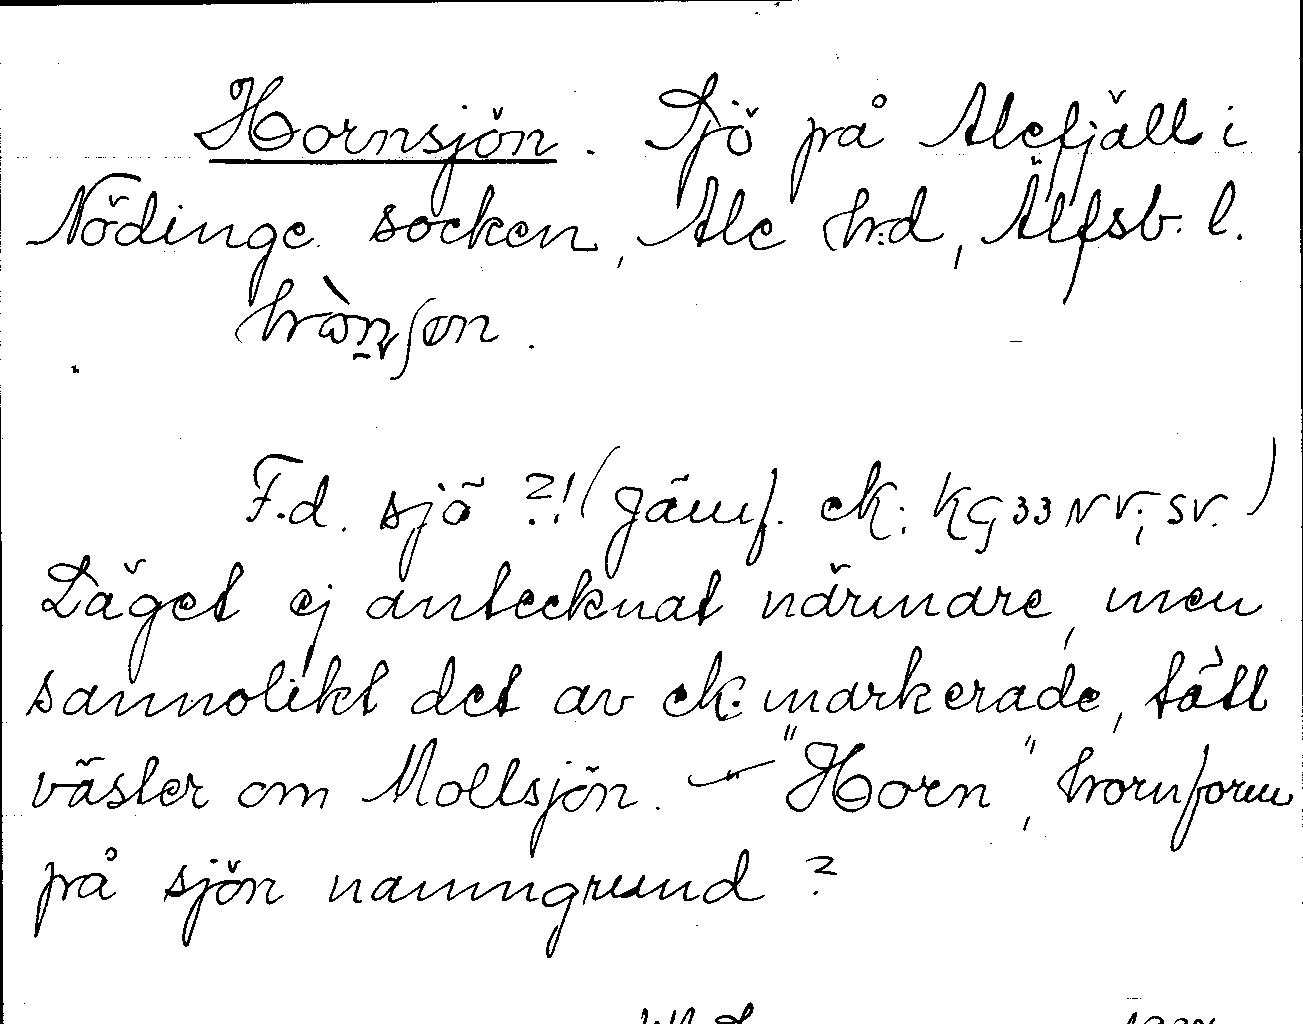 Hornsjön. Sjö på Alefjäll i
Nödinge socken, Ale hrd, Älfsb. l.
hrònʃon.
F.d. sjö ?! (Jämf. ek. KG 33 NV; SV.)
Läget ej antecknat närmare, men
sannolikt det av ek. markerade, tätt
väster om Mollsjön. – "Horn", hornform
på sjön namngrund?